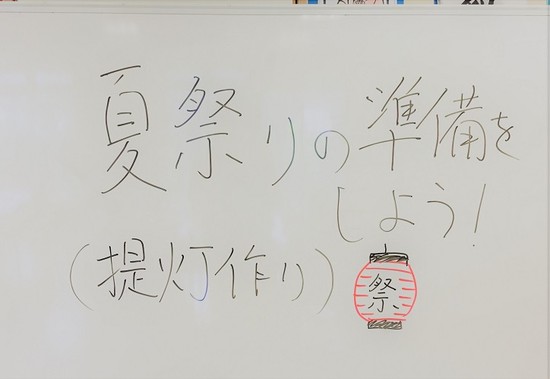 夏祭りの準備を
しよう!
(提灯作り)
祭